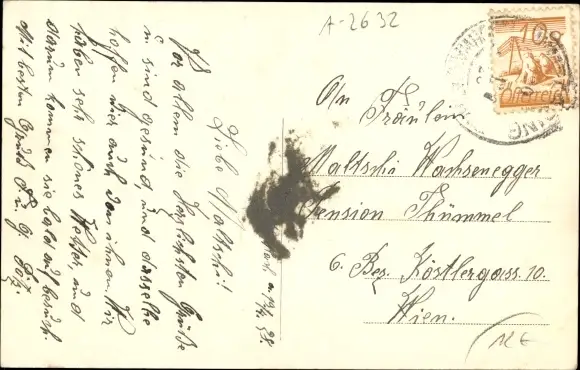 A-2632
10
Österreich
An
Fräulein
Maltschi Wachsenegger
Pension Thümmel
6. Bez. Köstlergass. 10.
Wien.
12 €
Liebe Maltschi!
Vor allem die herzlichsten Grüße
u. sind gesund, und dasselbe
hoffen wir auch von ihnen. Wir
haben sehr schönes Wetter, und
darum kommen sie bald auf besuch.
Mit besten Gruß